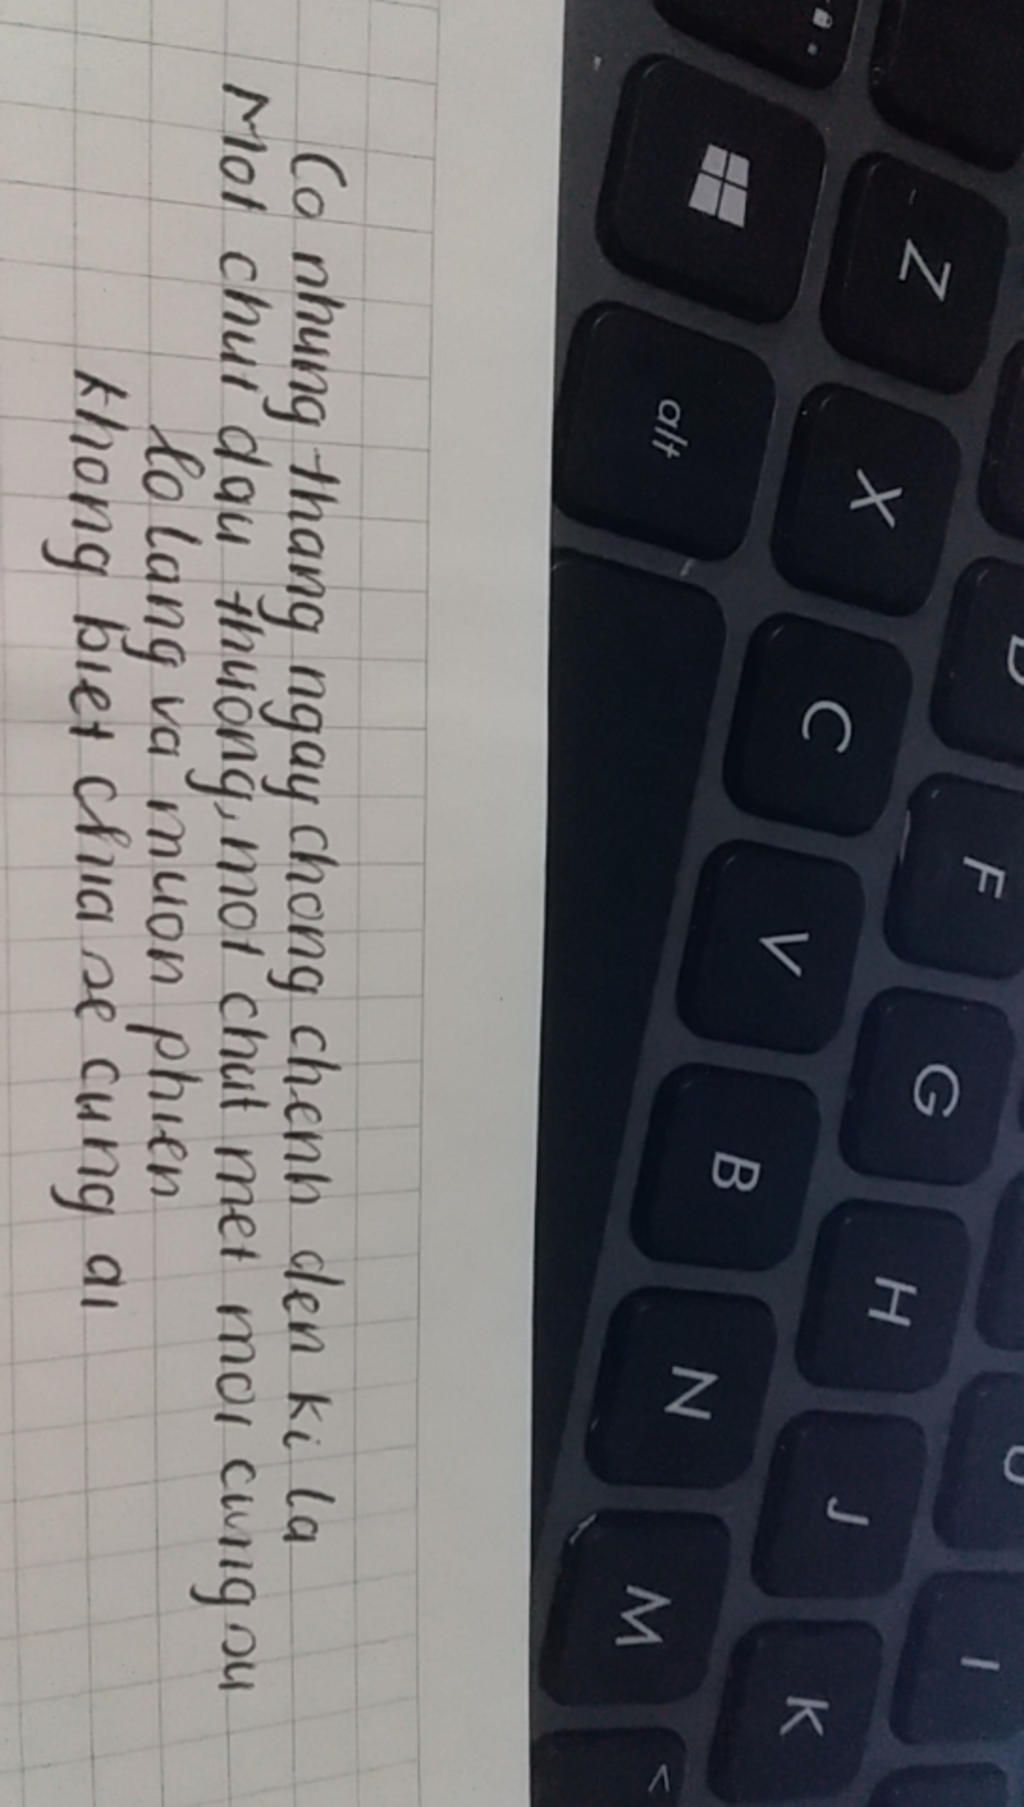 Co nhung thang ngay chong chenh den ki la
Mot chut dau thuong, mot chut met moi cung su
lo lang va muon phien
khong biet chia se cung ai
Z
alt
X
D
C
F
V
G
B
H
N
J
U
M
K
I
<